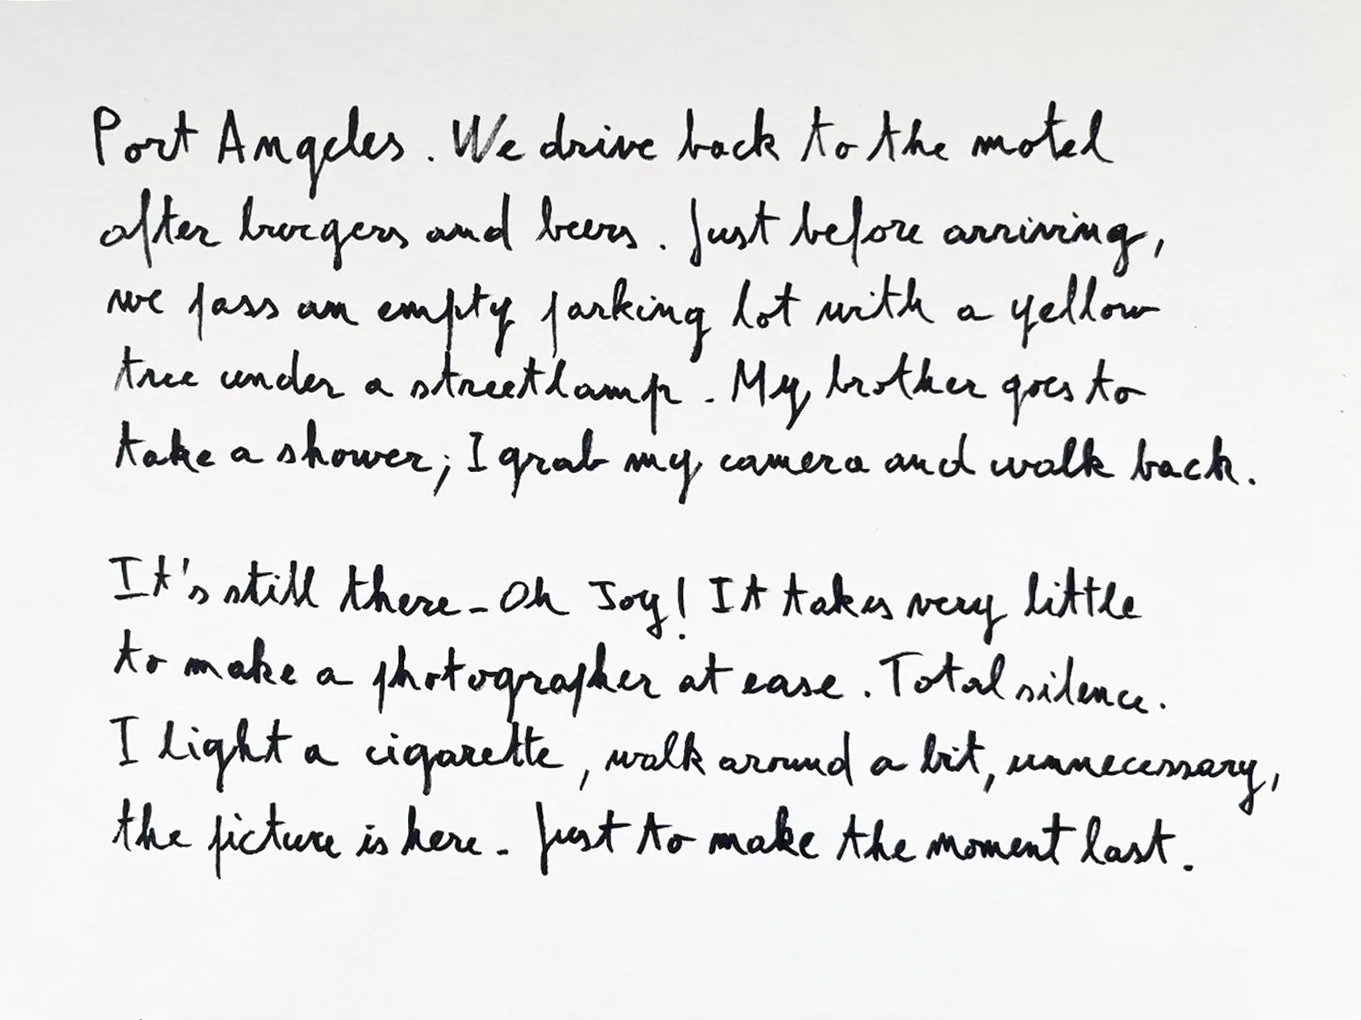 Port Angeles. We drive back to the motel
after burgers and beers. Just before arriving,
we pass an empty parking lot with a yellow
tree under a streetlamp. My brother goes to
take a shower; I grab my camera and walk back.
It's still there - Oh Joy! It takes very little
to make a photographer at ease. Total silence.
I light a cigarette, walk around a bit, unnecessary,
the picture is here - Just to make the moment last.